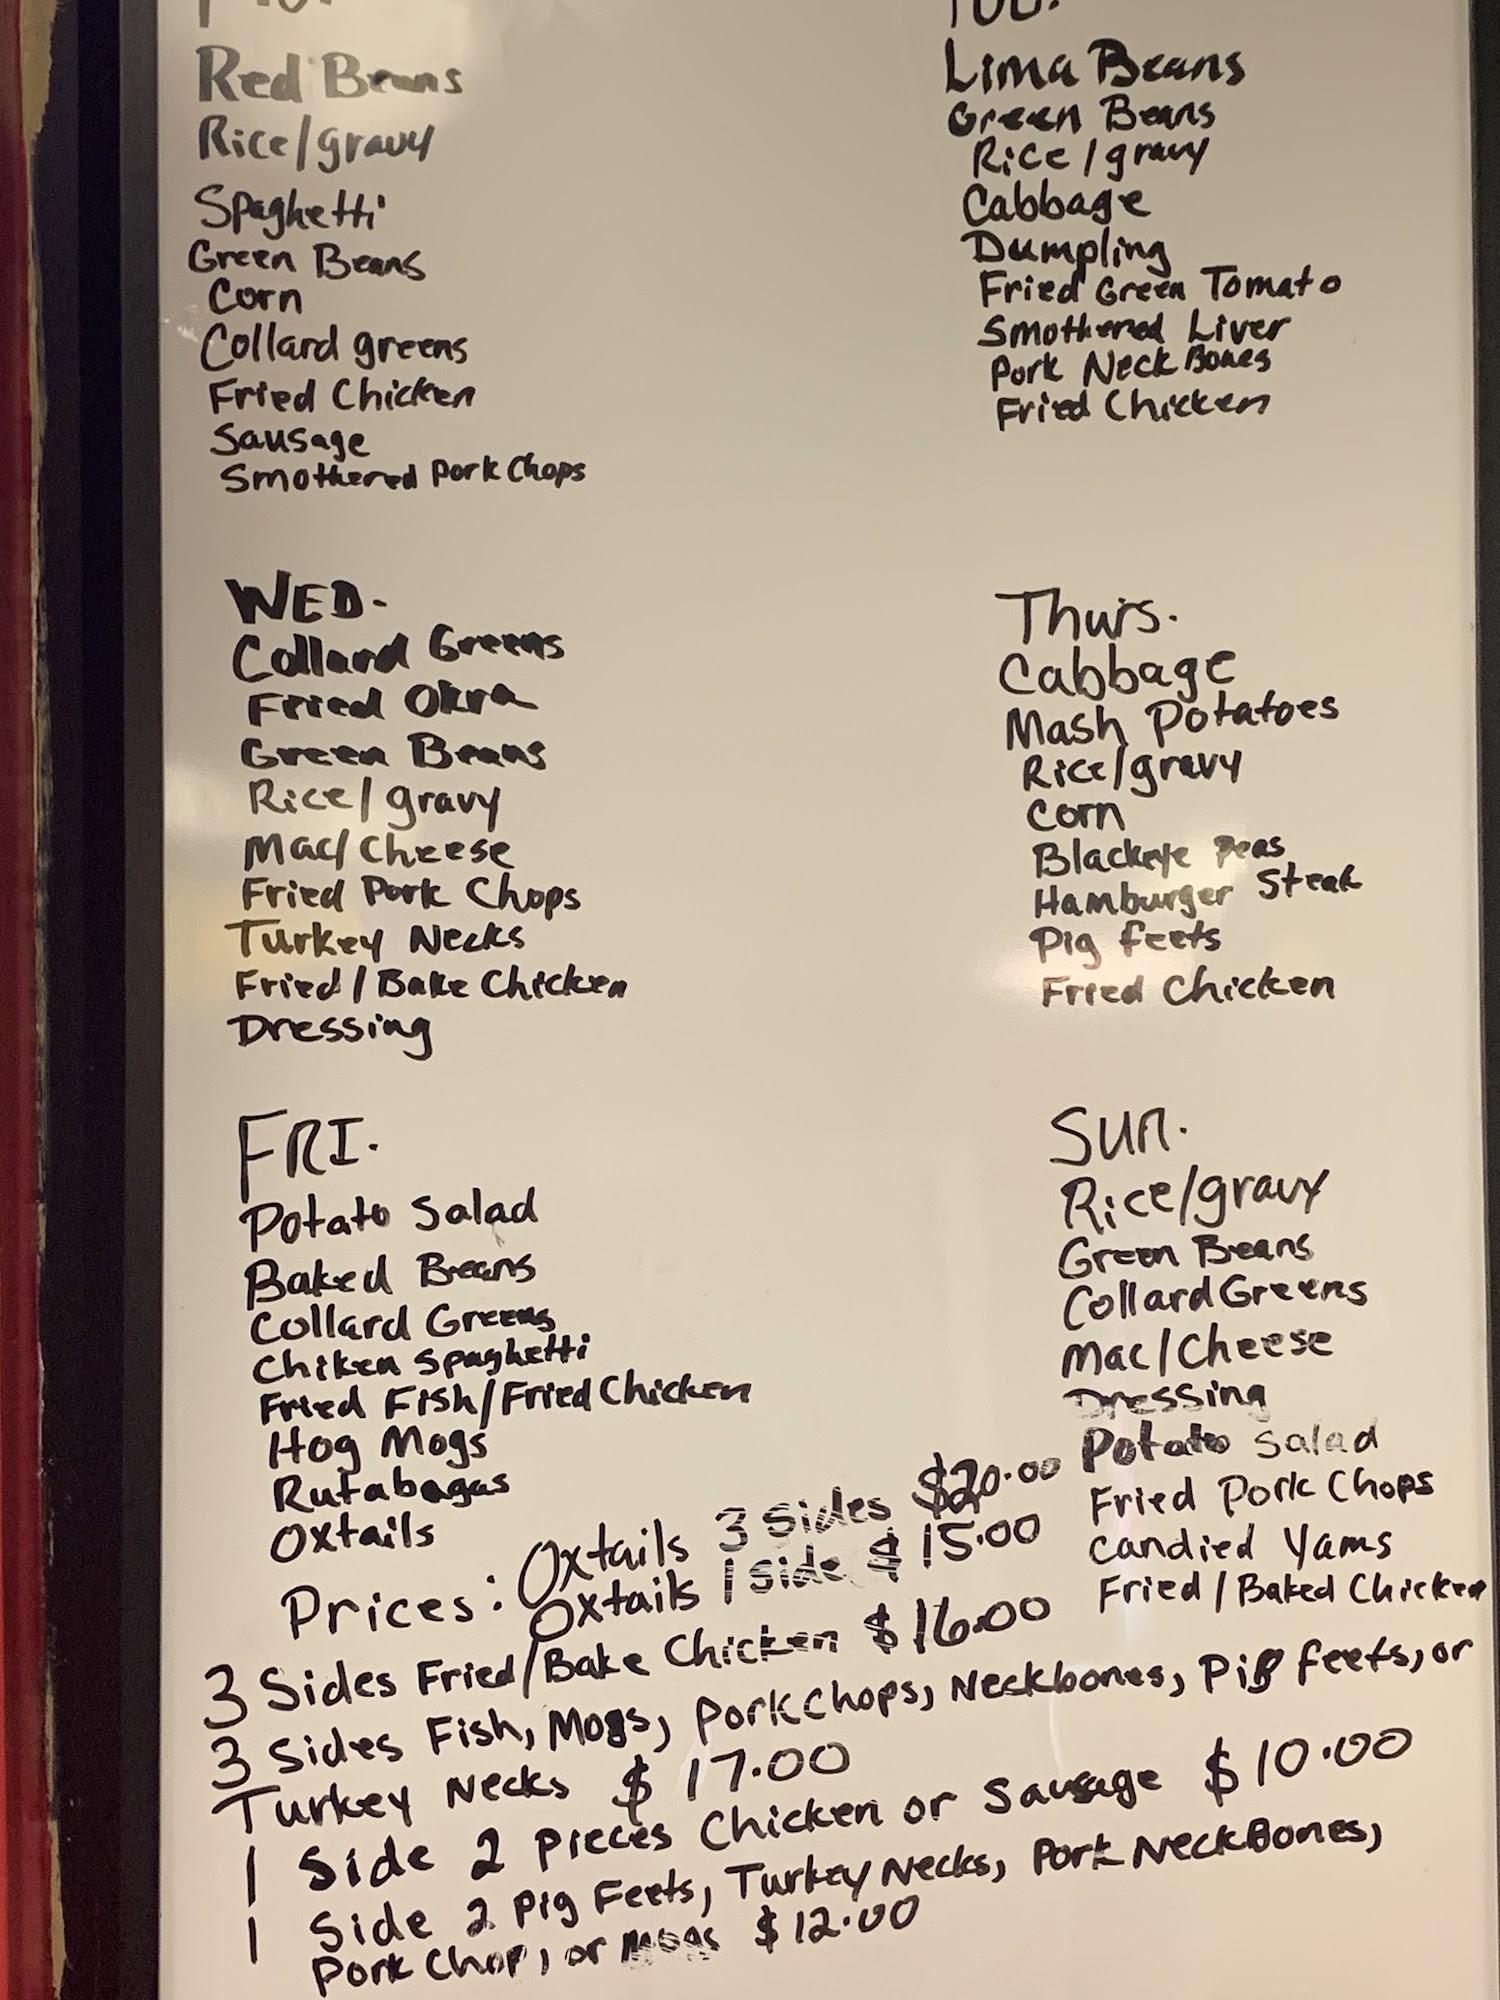 Red Beans
Rice/gravy
Spaghetti
Green Beans
Corn
Collard greens
Fried Chicken
Sausage
Smothered Pork Chops
Lima Beans
Green Beans
Rice/gravy
Cabbage
Dumpling
Fried Green Tomato
Smothered Liver
Pork Neck Bones
Fried Chicken
WED.
Collard Greens
Fried Okra
Green Beans
Rice/gravy
Mac/Cheese
Fried Pork Chops
Turkey Necks
Fried/Bake Chicken
Dressing
Thurs.
Cabbage
Mash Potatoes
Rice/gravy
Corn
Blackeye Peas
Hamburger Steak
Pig feets
Fried Chicken
FRI.
Potato Salad
Baked Beans
Collard Greens
Chiken Spaghetti
Fried Fish/Fried Chicken
Hog Mogs
Rutabagas
Oxtails
Sun.
Rice/gravy
Green Beans
Collard Greens
Mac/Cheese
Dressing
Potato Salad
Fried Pork Chops
Candied Yams
Fried/Baked Chicken
Prices: Oxtails 3 Sides $20.00
Oxtails 1 side $15.00
3 Sides Fried/Bake Chicken $16.00
3 Sides Fish, Mogs, Pork Chops, Neckbones, Pig feets, or
Turkey Necks $17.00
1 Side 2 Pieces Chicken or Sausage $10.00
1 Side 2 Pig Feets, Turkey Necks, Pork Neck Bones,
Pork Chop, or Mogs $12.00